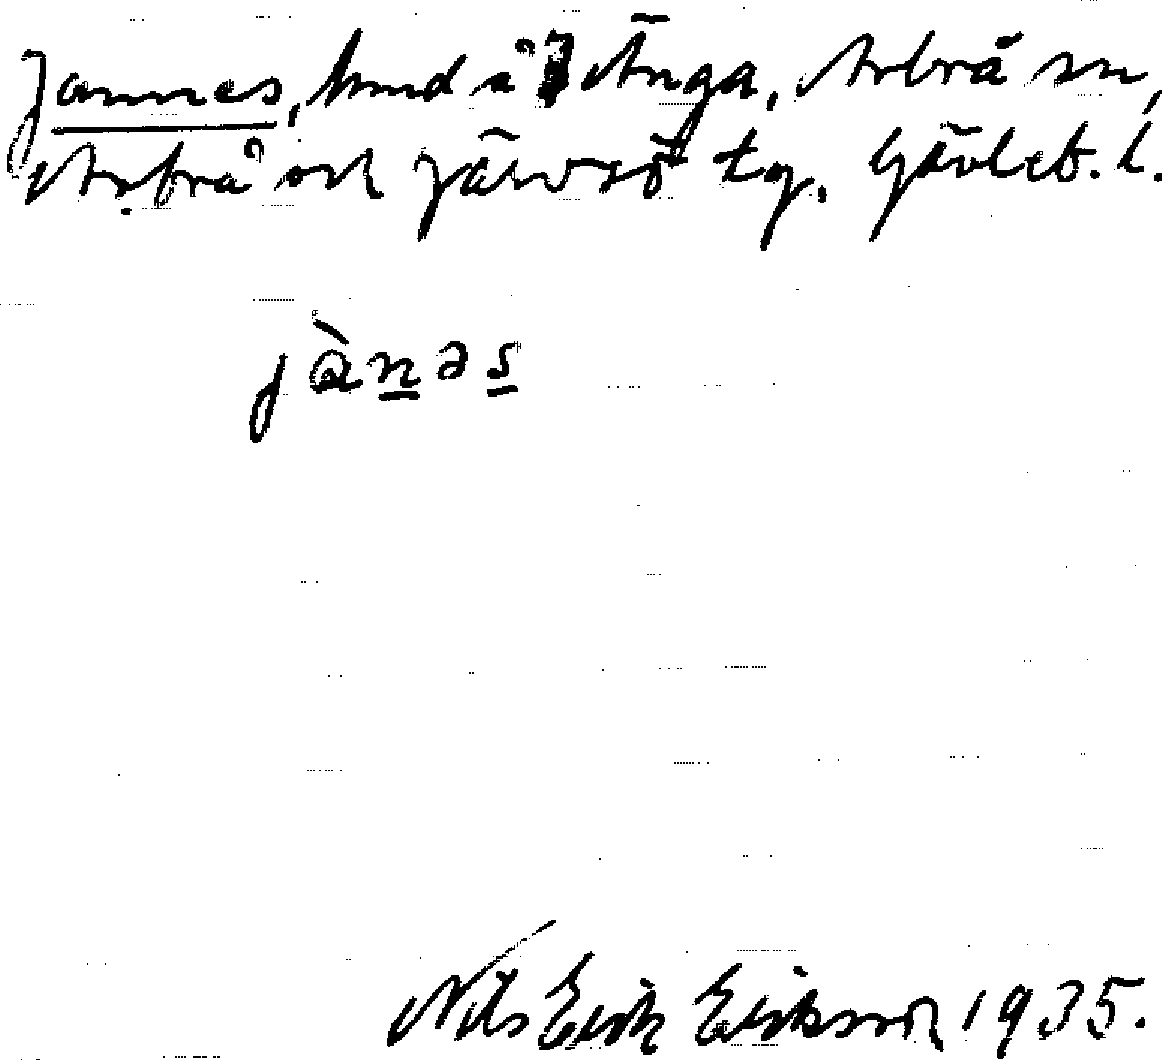 Jannes, hund å Änga, Arbrå sn,
Arbrå och Järvsö tg. Gävleb. l.
jànəs
Nils Erik Erikson 1935.